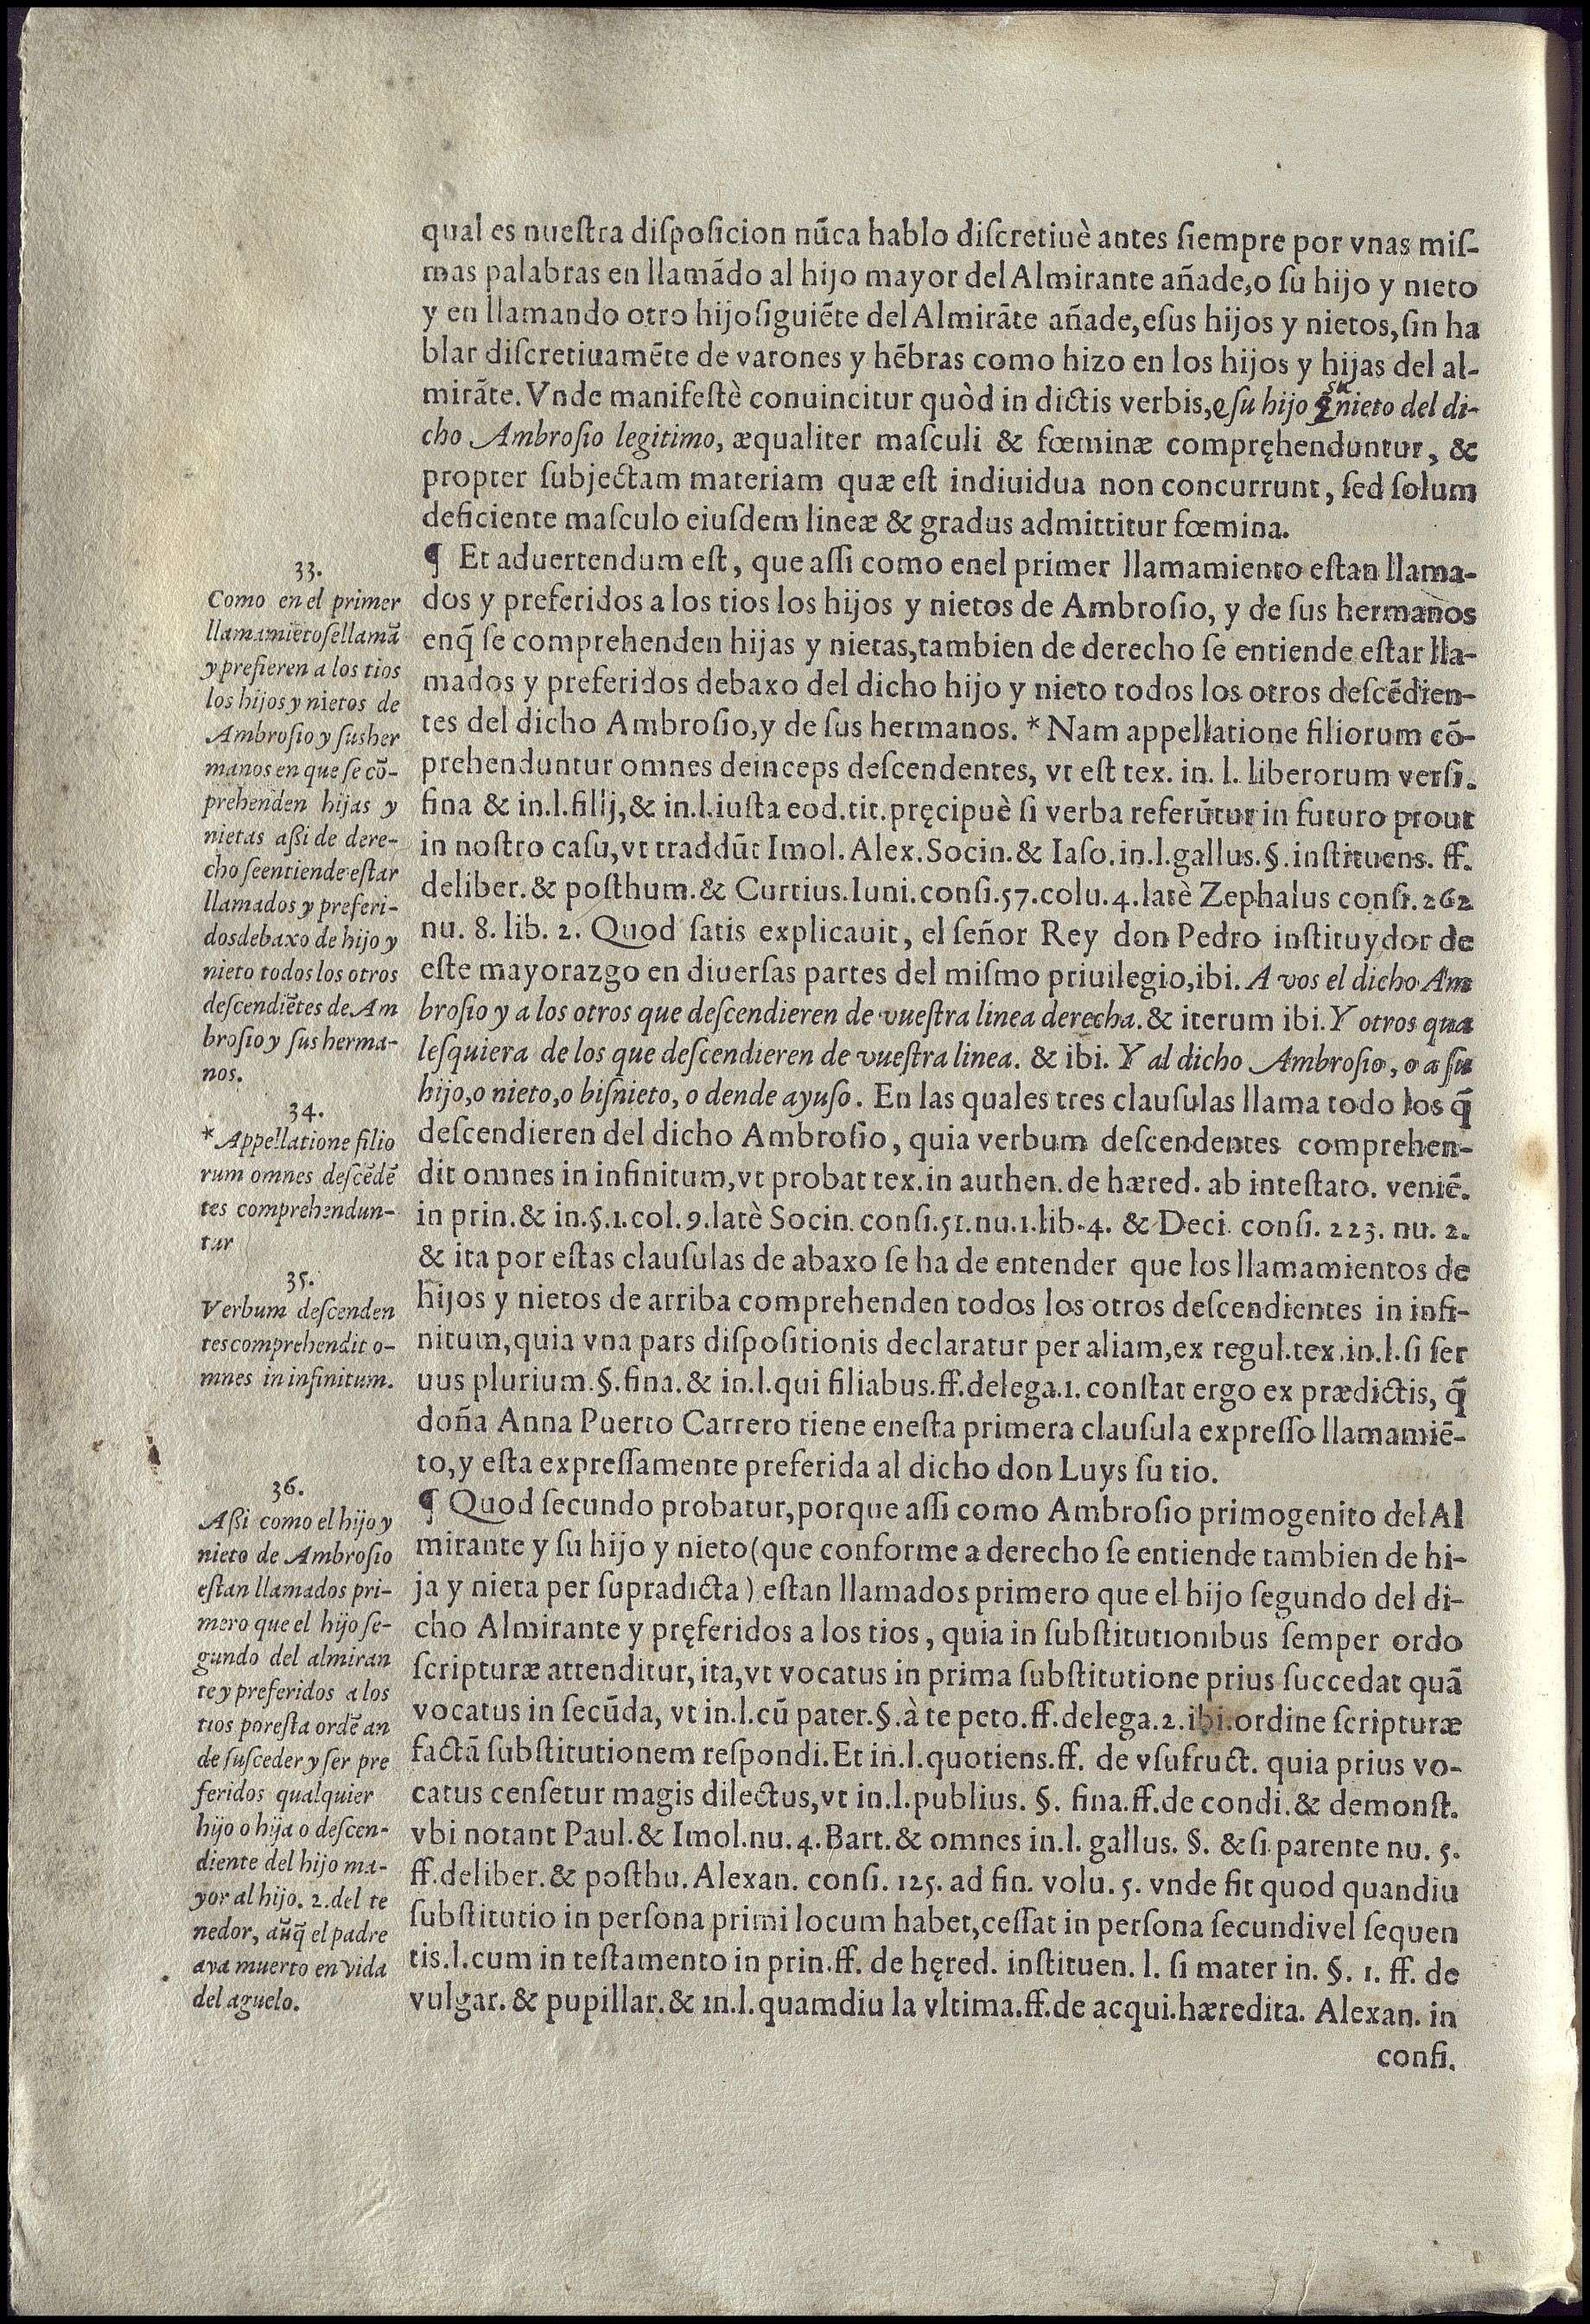 qual es nueſtra diſpoſicion nũca hablo diſcretiuè antes ſiempre por vnas miſ-
mas palabras en llamãdo al hijo mayor del Almirante añade,o ſu hijo y nieto
y en llamando otro hijo ſiguiẽte del Almirãte añade,eſus hijos y nietos,ſin ha
blar diſcretiuamẽte de varones y hẽbras como hizo en los hijos y hijas del al-
mirãte. Vnde manifeſtè conuincitur quòd in dictis verbis,o ſu hijo su nieto del di-
cho Ambroſio legitimo, æqualiter maſculi & fœminæ compręhenduntur, &
propter ſubjectam materiam quæ eſt indiuidua non concurrunt, ſed ſolum
deficiente maſculo eiuſdem lineæ & gradus admittitur fœmina.
¶ Et aduertendum eſt, que aſſi como enel primer llamamiento eſtan llama-
dos y preferidos a los tios los hijos y nietos de Ambroſio, y de ſus hermanos
enq̃ ſe comprehenden hijas y nietas,tambien de derecho ſe entiende eſtar lla-
mados y preferidos debaxo del dicho hijo y nieto todos los otros deſcẽdien-
tes del dicho Ambroſio,y de ſus hermanos. * Nam appellatione filiorum cõ-
prehenduntur omnes deinceps deſcendentes, vt eſt tex. in. l. liberorum verſi.
fina & in.l.filij,& in.l.iuſta eod.tit.pręcipuè ſi verba referũtur in futuro prout
in noſtro caſu,vt traddũt Imol. Alex. Socin.& Iaſo.in.l.gallus.§.inſtituens. ff.
deliber.& poſthum.& Curtius.Iuni.conſi.57.colu.4.latè Zephalus conſi.262
nu. 8. lib. 2. Quod ſatis explicauit, el ſeñor Rey don Pedro inſtituydor de
eſte mayorazgo en diuerſas partes del miſmo priuilegio,ibi. A vos el dicho Am
broſio y a los otros que deſcendieren de vueſtra linea derecha. & iterum ibi. Y otros qua
leſquiera de los que deſcendieren de vueſtra linea. & ibi. Y al dicho Ambroſio, o a ſu
hijo,o nieto,o biſnieto, o dende ayuſo. En las quales tres clauſulas llama todo los q̃
deſcendieren del dicho Ambroſio, quia verbum deſcendentes comprehen-
dit omnes in infinitum,vt probat tex.in authen.de hæred. ab inteſtato. veniẽ.
in prin.& in.§.1.col.9.latè Socin.conſi.51.nu.1.lib.4. & Deci. conſi. 223. nu. 2.
& ita por eſtas clauſulas de abaxo ſe ha de entender que los llamamientos de
hijos y nietos de arriba comprehenden todos los otros deſcendientes in infi-
nitum,quia vna pars diſpoſitionis declaratur per aliam,ex regul.tex.in.l.ſi ſer
uus plurium.§.fina.& in.l.qui filiabus.ff.delega.1. conſtat ergo ex prædictis, q̃
doña Anna Puerto Carrero tiene eneſta primera clauſula expreſſo llamamiẽ-
to,y eſta expreſſamente preferida al dicho don Luys ſu tio.
¶ Quod ſecundo probatur,porque aſſi como Ambroſio primogenito del Al
mirante y ſu hijo y nieto(que conforme a derecho ſe entiende tambien de hi-
ja y nieta per ſupradicta) eſtan llamados primero que el hijo ſegundo del di-
cho Almirante y pręferidos a los tios, quia in ſubſtitutionibus ſemper ordo
ſcripturæ attenditur,ita,vt vocatus in prima ſubſtitutione prius ſuccedat quã
vocatus in ſecũda, vt in.l.cũ pater.§.à te peto.ff.delega.2.ibi.ordine ſcripturæ
factã ſubſtitutionem reſpondi.Et in.l.quotiens.ff. de vſufruct. quia prius vo-
catus cenſetur magis dilectus,vt in.l.publius. §. fina.ff.de condi.& demonſt.
vbi notant Paul.& Imol.nu.4.Bart.& omnes in.l. gallus. §. & ſi parente nu. 5.
ff.deliber.& poſthu. Alexan. conſi. 125. ad fin. volu. 5. vnde fit quod quandiu
ſubſtitutio in perſona primi locum habet,ceſſat in perſona ſecundivel ſequen
tis.l.cum in teſtamento in prin.ff. de hęred. inſtituen. l. ſi mater in. §. 1. ff. de
vulgar.& pupillar.& in.l.quamdiu la vltima.ff.de acqui.hæredita. Alexan. in
conſi.
33.
Como en el primer
llamamiẽtoſellamã
y prefieren a los tios
los hijos y nietos de
Ambroſio y ſus her
manos en que ſe cõ-
prehenden hijas y
nietas aßi de dere-
cho ſeentiende eſtar
llamados y preferi-
dosdebaxo de hijo y
nieto todos los otros
deſcendiẽtes de Am
broſio y ſus herma-
nos.
34.
* Appellatione filio
rum omnes deſcẽdẽ
tes comprehendun-
tur
35.
Verbum deſcenden
tes comprehendit o-
mnes in infinitum.
36.
Aßi como el hijo y
nieto de Ambroſio
eſtan llamados pri-
mero que el hijo ſe-
gundo del almiran
te y preferidos a los
tios poreſta ordẽ an
de ſuſceder y ſer pre
feridos qualquier
hijo o hija o deſcen-
diente del hijo ma-
yor al hijo. 2. del te
nedor, aũq̃ el padre
aya muerto en vida
del aguelo.